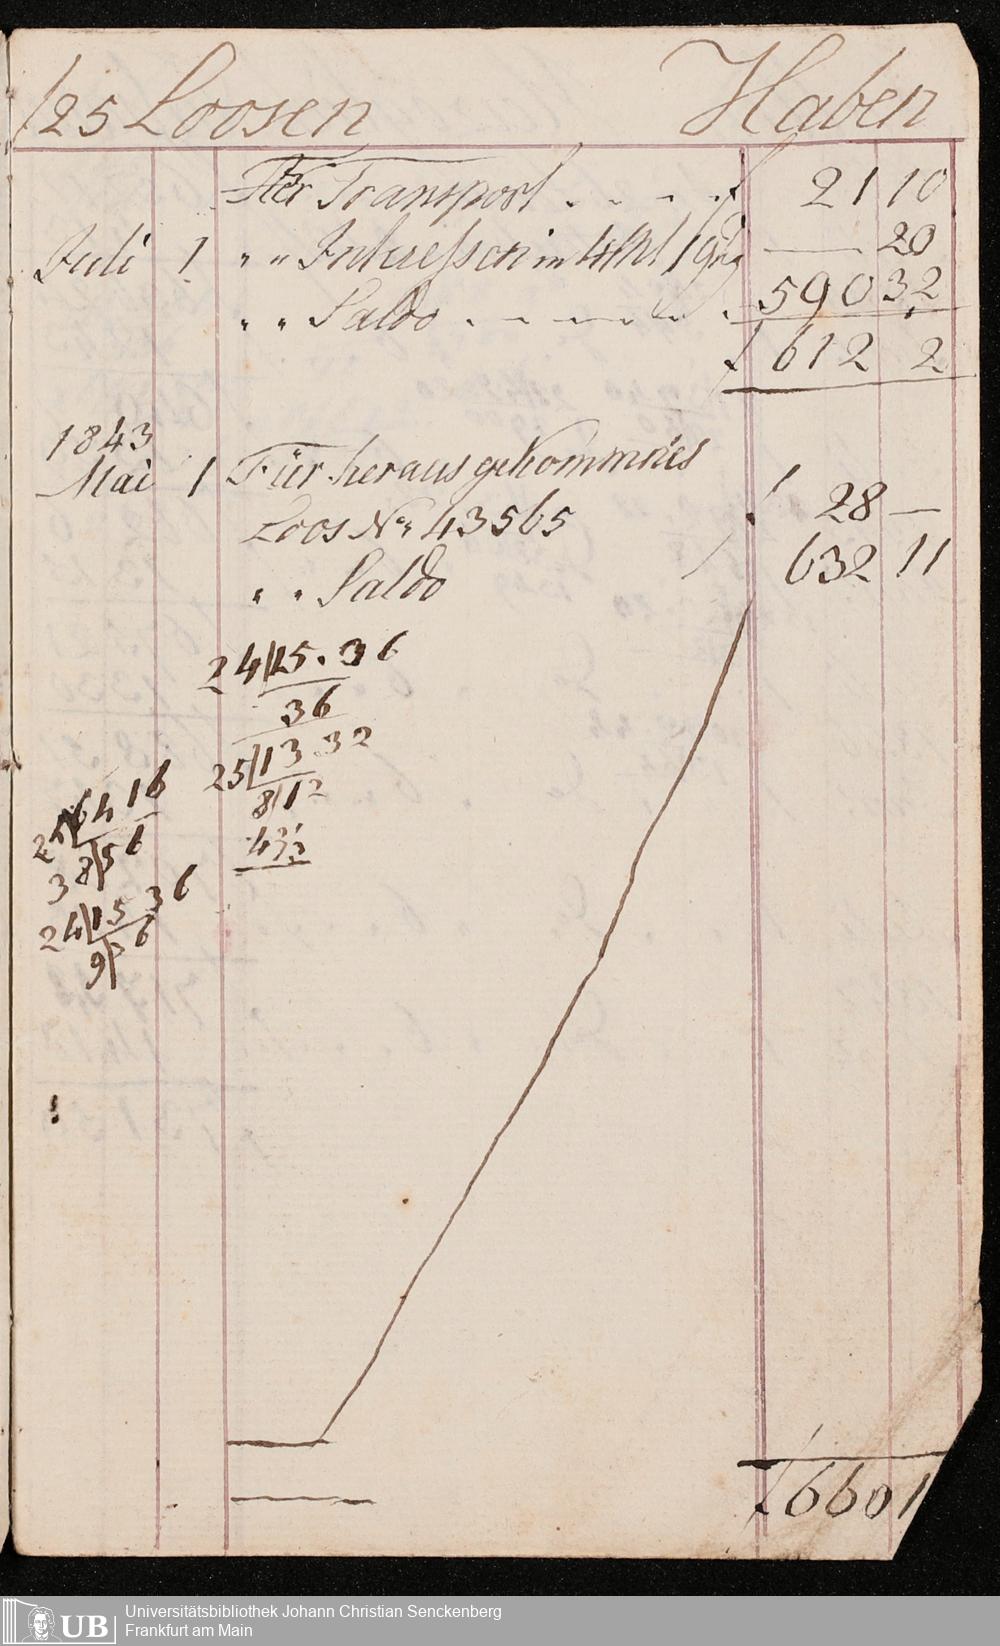 /25 Loosen Haben
Per Transport . . . . f 21 10
Juli 1 " " Interessen in — 20
" " Saldo . . . . . . 590 32
f 612 2
1843
Mai 1 Für heraus gekommnes
Loos No. 43565 f 28 —
" " Saldo 632 11
24/15.36
36
25/13 32
8/12
16
24/15 36
f 660 1
UB Universitätsbibliothek Johann Christian Senckenberg
Frankfurt am Main